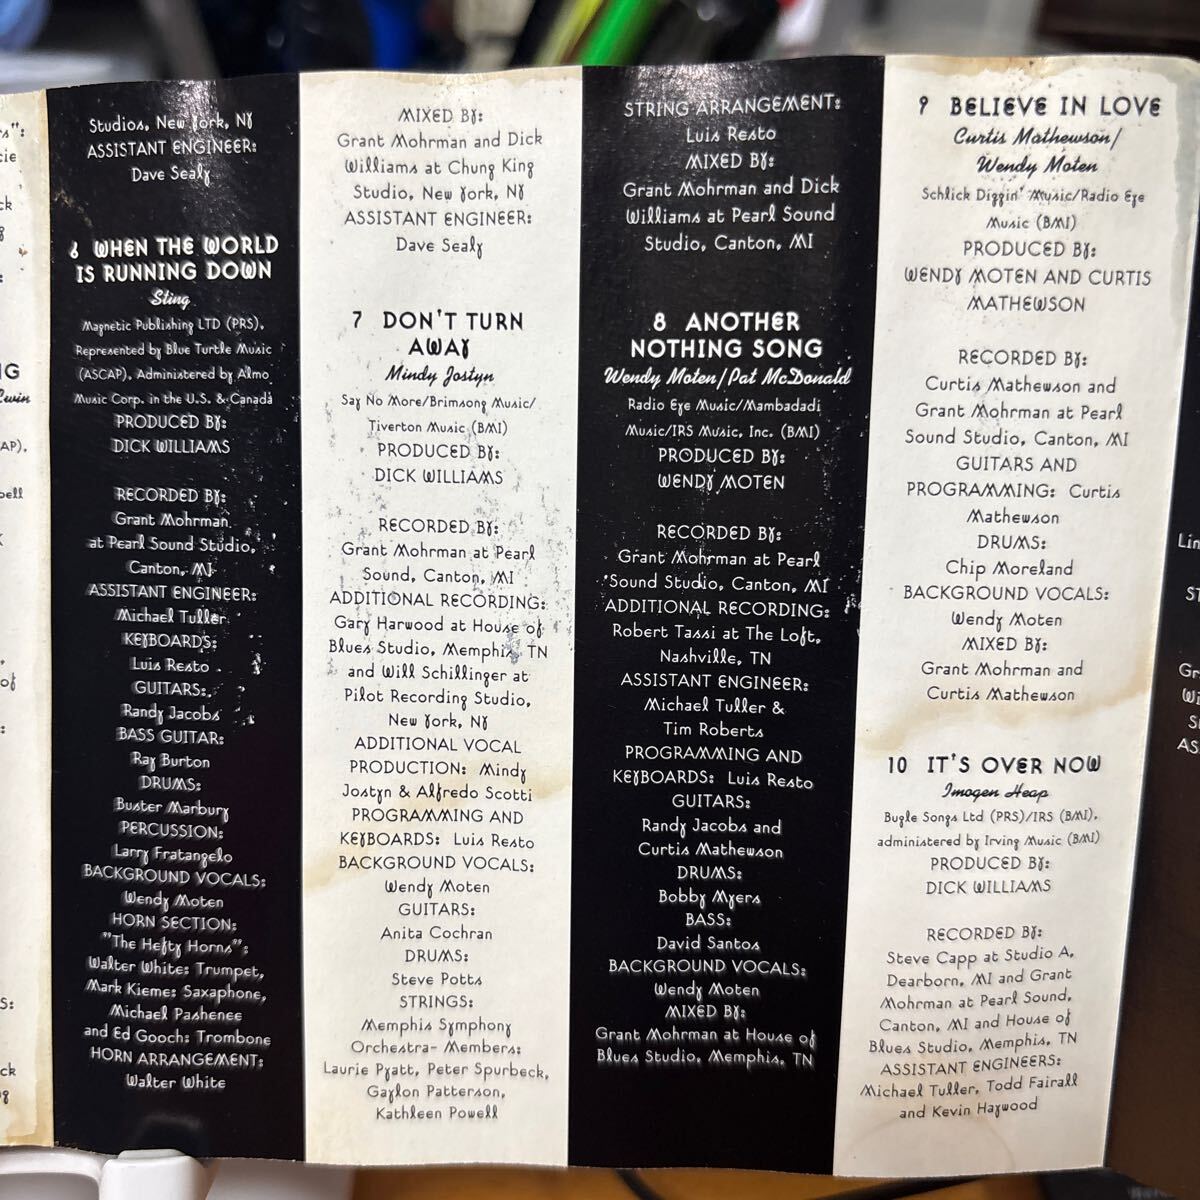 s":
cie
ck
g
NG
Lwin
AP),
bell
K
of
S:
ck
g
Studios, New York, NY
ASSISTANT ENGINEER:
Dave Sealy
6 WHEN THE WORLD
IS RUNNING DOWN
Sting
Magnetic Publishing LTD (PRS).
Represented by Blue Turtle Music
(ASCAP), Administered by Almo
Music Corp. in the U.S. & Canada
PRODUCED BY:
DICK WILLIAMS
RECORDED BY:
Grant Mohrman
at Pearl Sound Studio,
Canton, MI
ASSISTANT ENGINEER:
Michael Tuller
KEYBOARDS:
Luis Resto
GUITARS:
Randy Jacobs
BASS GUITAR:
Ray Burton
DRUMS:
Buster Marbury
PERCUSSION:
Larry Fratangelo
BACKGROUND VOCALS:
Wendy Moten
HORN SECTION:
"The Hefty Horns":
Walter White: Trumpet,
Mark Kieme: Saxaphone,
Michael Pashenee
and Ed Gooch: Trombone
HORN ARRANGEMENT:
Walter White
MIXED BY:
Grant Mohrman and Dick
Williams at Chung King
Studio, New York, NY
ASSISTANT ENGINEER:
Dave Sealy
7 DON'T TURN
AWAY
Mindy Jostyn
Say No More/Brimsong Music/
Tiverton Music (BMI)
PRODUCED BY:
DICK WILLIAMS
RECORDED BY:
Grant Mohrman at Pearl
Sound, Canton, MI
ADDITIONAL RECORDING:
Gary Harwood at House of
Blues Studio, Memphis, TN
and Will Schillinger at
Pilot Recording Studio,
New York, NY
ADDITIONAL VOCAL
PRODUCTION: Mindy
Jostyn & Alfredo Scotti
PROGRAMMING AND
KEYBOARDS: Luis Resto
BACKGROUND VOCALS:
Wendy Moten
GUITARS:
Anita Cochran
DRUMS:
Steve Potts
STRINGS:
Memphis Symphony
Orchestra- Members:
Laurie Pyatt, Peter Spurbeck,
Gaylon Patterson,
Kathleen Powell
STRING ARRANGEMENT:
Luis Resto
MIXED BY:
Grant Mohrman and Dick
Williams at Pearl Sound
Studio, Canton, MI
8 ANOTHER
NOTHING SONG
Wendy Moten/Pat McDonald
Radio Eye Music/Mambadadi
Music/IRS Music, Inc. (BMI)
PRODUCED BY:
WENDY MOTEN
RECORDED BY:
Grant Mohrman at Pearl
Sound Studio, Canton, MI
ADDITIONAL RECORDING:
Robert Tassi at The Loft,
Nashville, TN
ASSISTANT ENGINEER:
Michael Tuller &
Tim Roberts
PROGRAMMING AND
KEYBOARDS: Luis Resto
GUITARS:
Randy Jacobs and
Curtis Mathewson
DRUMS:
Bobby Myers
BASS:
David Santos
BACKGROUND VOCALS:
Wendy Moten
MIXED BY:
Grant Mohrman at House of
Blues Studio, Memphis, TN
9 BELIEVE IN LOVE
Curtis Mathewson/
Wendy Moten
Schlick Diggin' Music/Radio Eye
Music (BMI)
PRODUCED BY:
WENDY MOTEN AND CURTIS
MATHEWSON
RECORDED BY:
Curtis Mathewson and
Grant Mohrman at Pearl
Sound Studio, Canton, MI
GUITARS AND
PROGRAMMING: Curtis
Mathewson
DRUMS:
Chip Moreland
BACKGROUND VOCALS:
Wendy Moten
MIXED BY:
Grant Mohrman and
Curtis Mathewson
10 IT'S OVER NOW
Imogen Heap
Bugle Songs Ltd (PRS)/IRS (BMI),
administered by Irving Music (BMI)
PRODUCED BY:
DICK WILLIAMS
RECORDED BY:
Steve Capp at Studio A,
Dearborn, MI and Grant
Mohrman at Pearl Sound,
Canton, MI and House of
Blues Studio, Memphis, TN
ASSISTANT ENGINEERS:
Michael Tuller, Todd Fairall
and Kevin Haywood
Lin
ST
Gr
W
S
AS